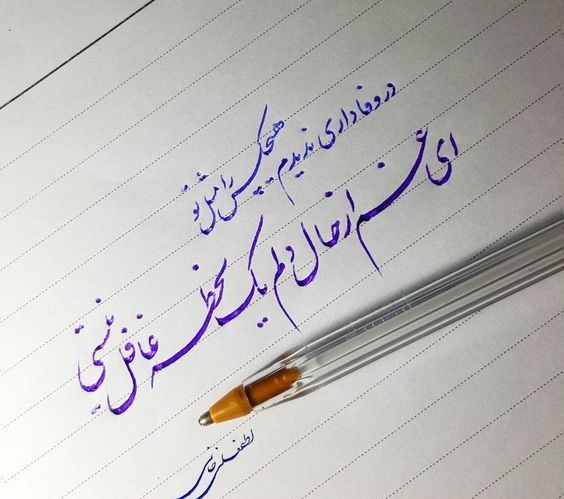 در وفاداری ندیدم.. هیچکس را مثل تو
ای غم از حال دلم یک لحظه غافل نیستی..
لطفعلی خانی